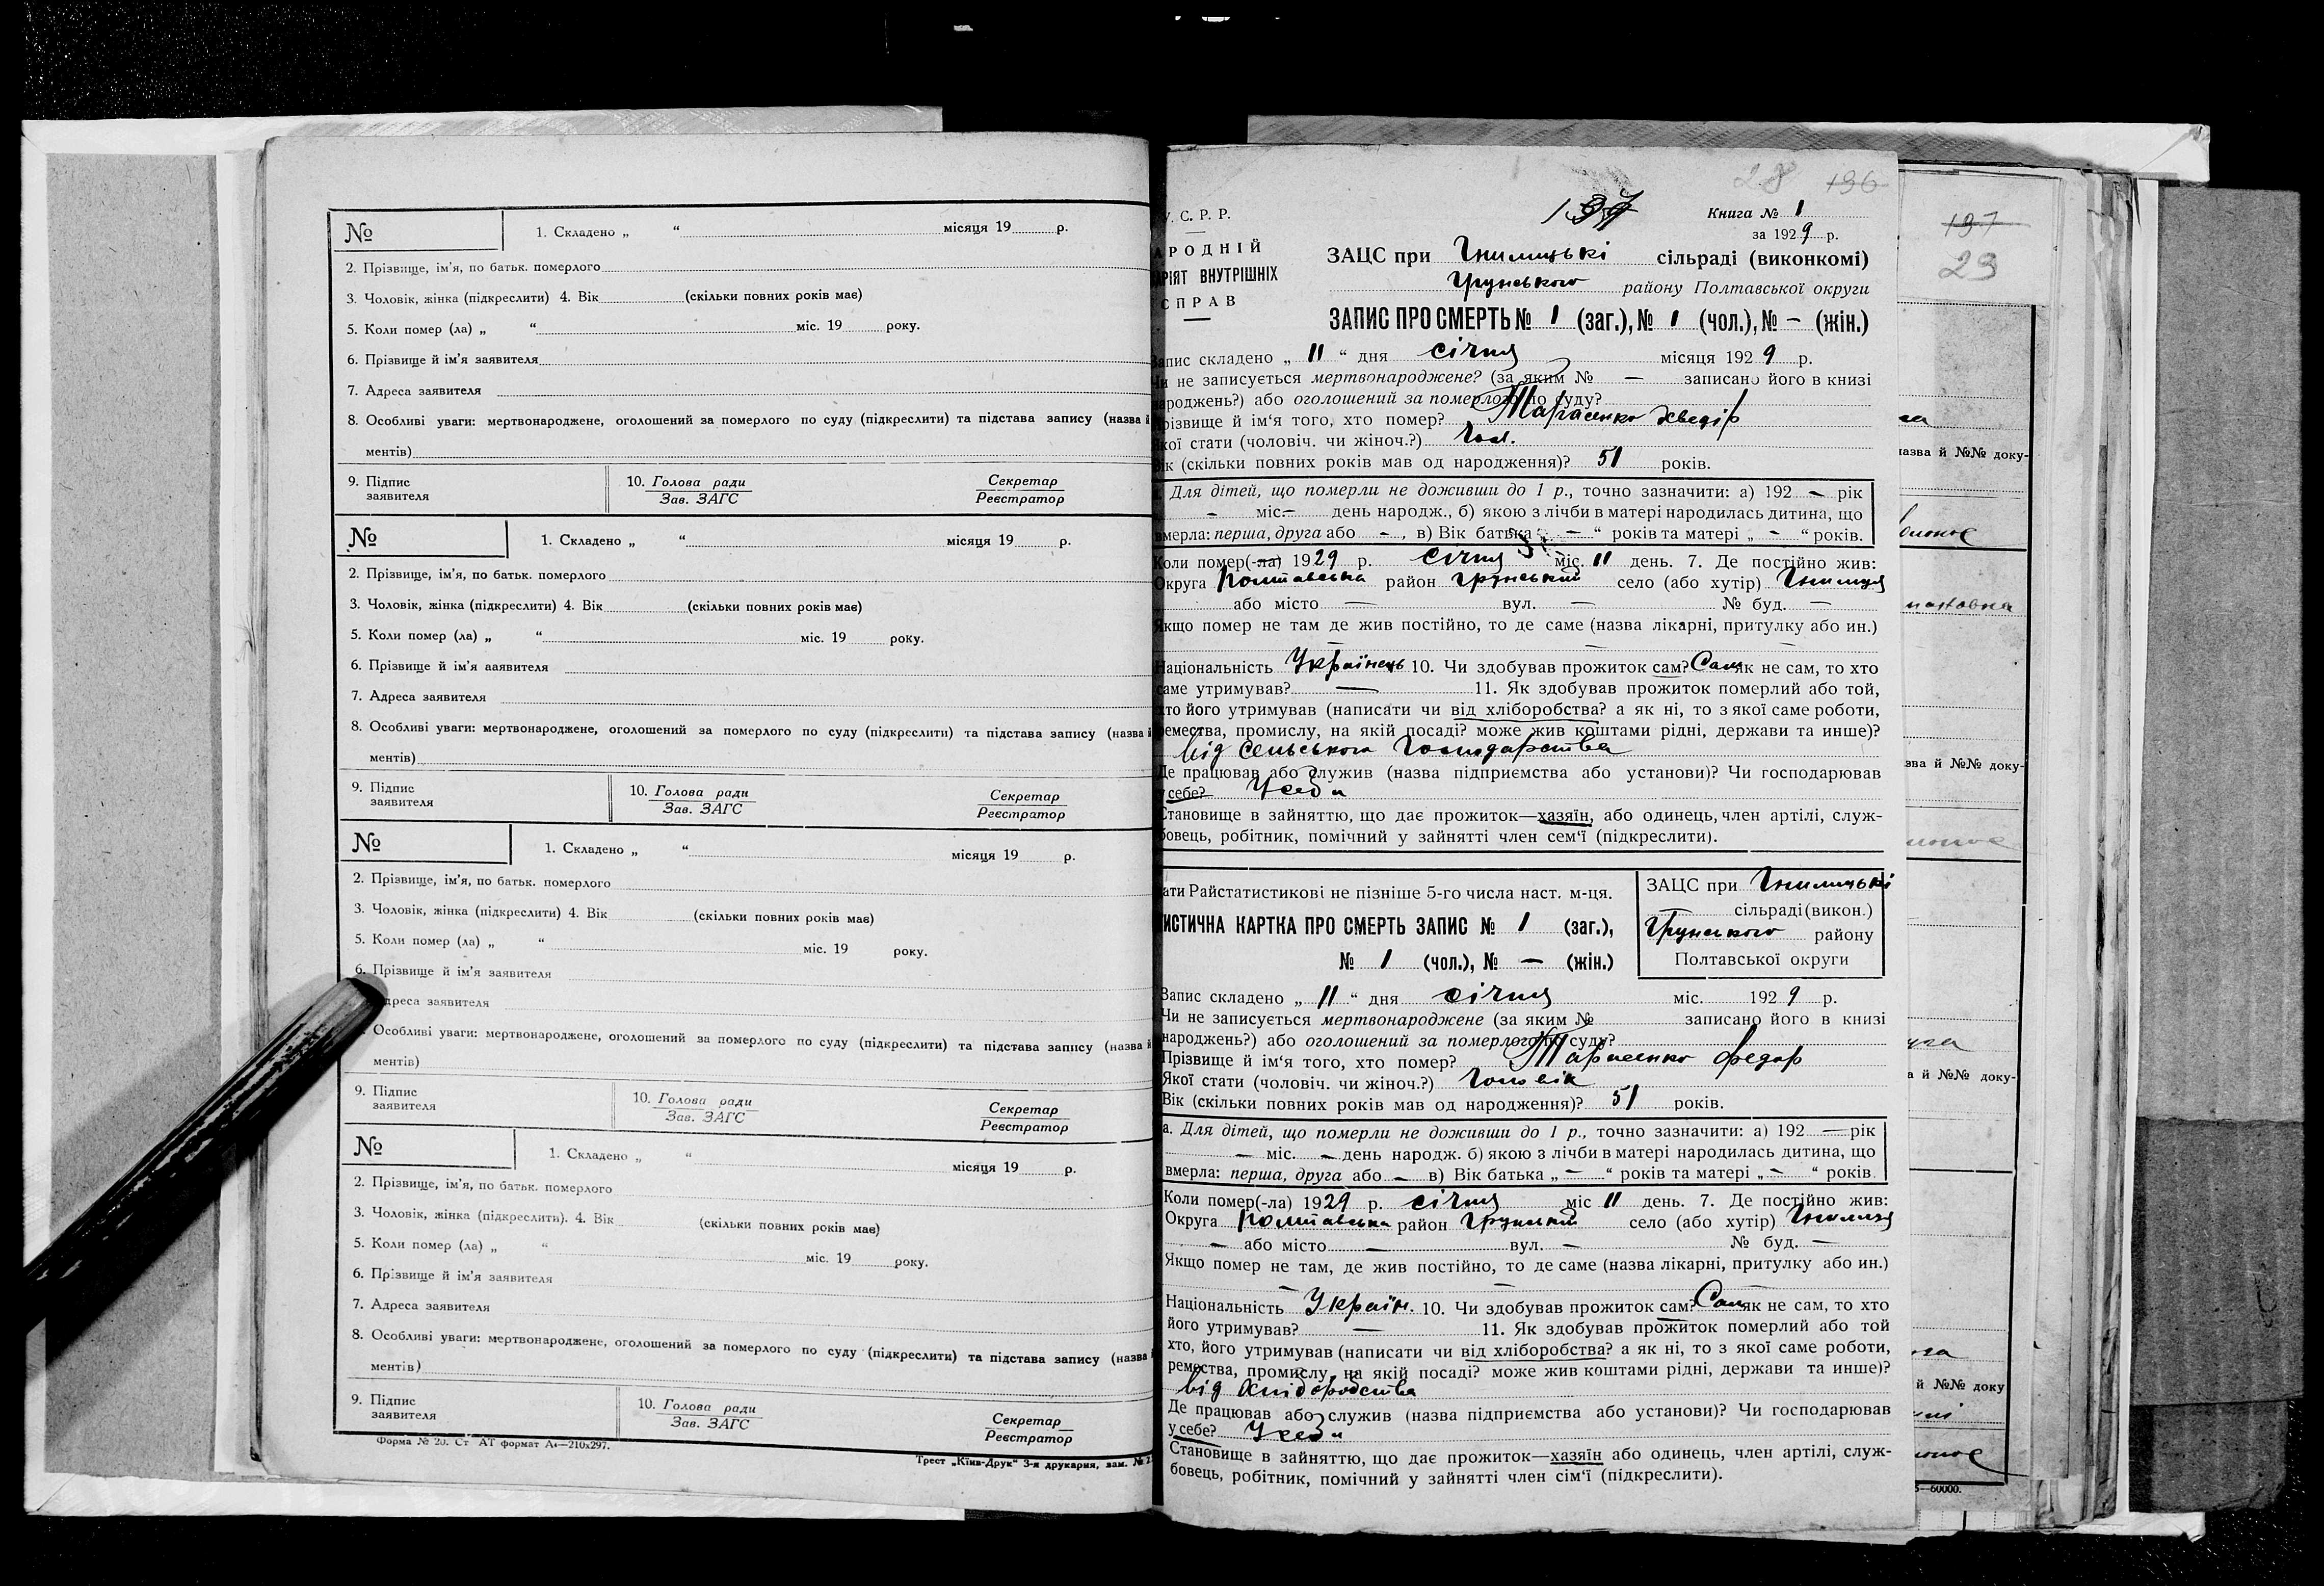 № 1. Складено „ “ місяця 19 р.
2. Прізвище, ім'я, по батьк. померлого
3. Чоловік, жінка (підкреслити) 4. Вік (скільки повних років має)
5. Коли помер (ла) „ “ міс. 19 року.
6. Прізвище й ім'я заявителя
7. Адреса заявителя
8. Особливі уваги: мертвонароджене, оголошений за померлого по суду (підкреслити) та підстава запису (назва й
ментів)
9. Підпис 10. Голова ради Секретар
заявителя Зав. ЗАГС Реєстратор
№ 1. Складено „ “ місяця 19 р.
2. Прізвище, ім'я, по батьк. померлого
3. Чоловік, жінка (підкреслити) 4. Вік (скільки повних років має)
5. Коли помер (ла) „ “ міс. 19 року.
6. Прізвище й ім'я аявителя
7. Адреса заявителя
8. Особливі уваги: мертвонароджене, оголошений за померлого по суду (підкреслити) та підстава запису (назва й
ментів)
9. Підпис 10. Голова ради Секретар
заявителя Зав. ЗАГС Реєстратор
№ 1. Складено „ “ місяця 19 р.
2. Прізвище, ім'я, по батьк. померлого
3. Чоловік, жінка (підкреслити) 4. Вік (скільки повних років має)
5. Коли помер (ла) „ “ міс. 19 року.
6. Прізвище й ім'я заявителя
дреса заявителя
Особливі уваги: мертвонароджене, оголошений за померлого по суду (підкреслити) та підстава запису (назва й
ментів)
9. Підпис 10. Голова ради Секретар
заявителя Зав. ЗАГС Реєстратор
№ 1. Складено „ “ місяця 19 р.
2. Прізвище, ім'я, по батьк. померлого
3. Чоловік, жінка (підкреслити). 4. Вік (скільки повних років має)
5. Коли помер (ла) „ “ міс. 19 року.
6. Прізвище й ім'я заявителя
7. Адреса заявителя
8. Особливі уваги: мертвонароджене, оголошений за померлого по суду (підкреслити) та підстава запису (назва й
ментів)
9. Підпис 10. Голова ради Секретар
заявителя Зав. ЗАГС Реєстратор
Форма № 20. Ст АТ формат А4—210х297.
Трест „Київ-Друк“ 3-я друкарня, зам. №
28 196
У. С. Р. Р. Книга № 1
за 1929 р.
АРОДНІЙ
РІЯТ ВНУТРІШНІХ
СПРАВ
ЗАЦС при Гнилицькі сільраді (виконкомі)
Грунського району Полтавської округи
ЗАПИС ПРО СМЕРТЬ № 1 (заг.), № 1 (чол.), № — (жін.)
Запис складено „ 11 “ дня січня місяця 1929 р.
Чи не записується мертвонароджене? (за яким № — записано його в книзі
ароджень?) або оголошений за померлого по суду?
різвище й ім‘я того, хто помер? Тарасенко Хведір
кої стати (чоловіч. чи жіноч.?) Чол.
ік (скільки повних років мав од народження)? 51 років.
Для дітей, що померли не доживши до 1 р., точно зазначити: а) 192 — рік
— міс. — день народж., б) якою з лічби в матері народилась дитина, що
вмерла: перша, друга або — , в) Вік батька „ — “ років та матері „ — “ років.
Коли помер(-ла) 1929 р. січня міс. 11 день. 7. Де постійно жив:
Округа Полтавська район Грунський село (або хутір) Гнилиця
або місто — вул. — № буд. —
Якщо помер не там де жив постійно, то де саме (назва лікарні, притулку або ин.)
Національність Українець 10. Чи здобував прожиток сам? Сам як не сам, то хто
саме утримував? — 11. Як здобував прожиток померлий або той,
хто його утримував (написати чи від хліборобства? а як ні, то з якої саме роботи,
ремества, промислу, на якій посаді? може жив коштами рідні, держави та инше)?
від сельського господарства
Де працював або служив (назва підприємства або установи)? Чи господарював
у себе? У себе
Становище в зайняттю, що дає прожиток—хазяїн, або одинець, член артілі, служ-
бовець, робітник, помічний у зайнятті член сем‘ї (підкреслити).
ати Райстатистикові не пізніше 5-го числа наст. м-ця.
ИСТИЧНА КАРТКА ПРО СМЕРТЬ ЗАПИС № 1 (заг.),
№ 1 (чол.), № — (жін.)
ЗАЦС при Гнилицькі
сільраді (викон.)
Грунського району
Полтавської округи
Запис складено „ 11 “ дня січня міс. 1929 р.
Чи не записується мертвонароджене (за яким № записано його в книзі
народжень?) або оголошений за померлого по суду?
Прізвище й ім‘я того, хто помер? Тарасенко Федор
Якої стати (чоловіч. чи жіноч.?) Чоловік
Вік (скільки повних років мав од народження)? 51 років.
а. Для дітей, що померли не доживши до 1 р., точно зазначити: а) 192 — рік
— міс. — день народж. б) якою з лічби в матері народилась дитина, що
вмерла: перша, друга або — в) Вік батька „ — “ років та матері „ — “ років.
Коли помер(-ла) 1929 р. січня міс 11 день. 7. Де постійно жив:
Округа Полтавська район Грунський село (або хутір) Гнилиця
— або місто — вул. — № буд. —
Якщо помер не там, де жив постійно, то де саме (назва лікарні, притулку або ин.)
Національність Україн. 10. Чи здобував прожиток сам? Сам як не сам, то хто
його утримував? — 11. Як здобував прожиток померлий або той
хто, його утримував (написати чи від хліборобства? а як ні, то з якої саме роботи,
ремества, промислу, на якій посаді? може жив коштами рідні, держави та инше)?
від хліборобства
Де працював або служив (назва підприємства або установи)? Чи господарював
у себе? У себе
Становище в зайняттю, що дає прожиток—хазяїн або одинець, член артілі, служ-
бовець, робітник, помічний у зайнятті член сім‘ї (підкреслити).
197
29
назва й №№ доку-
зва й №№ доку-
а й №№ доку-
й №№ доку
—60000.